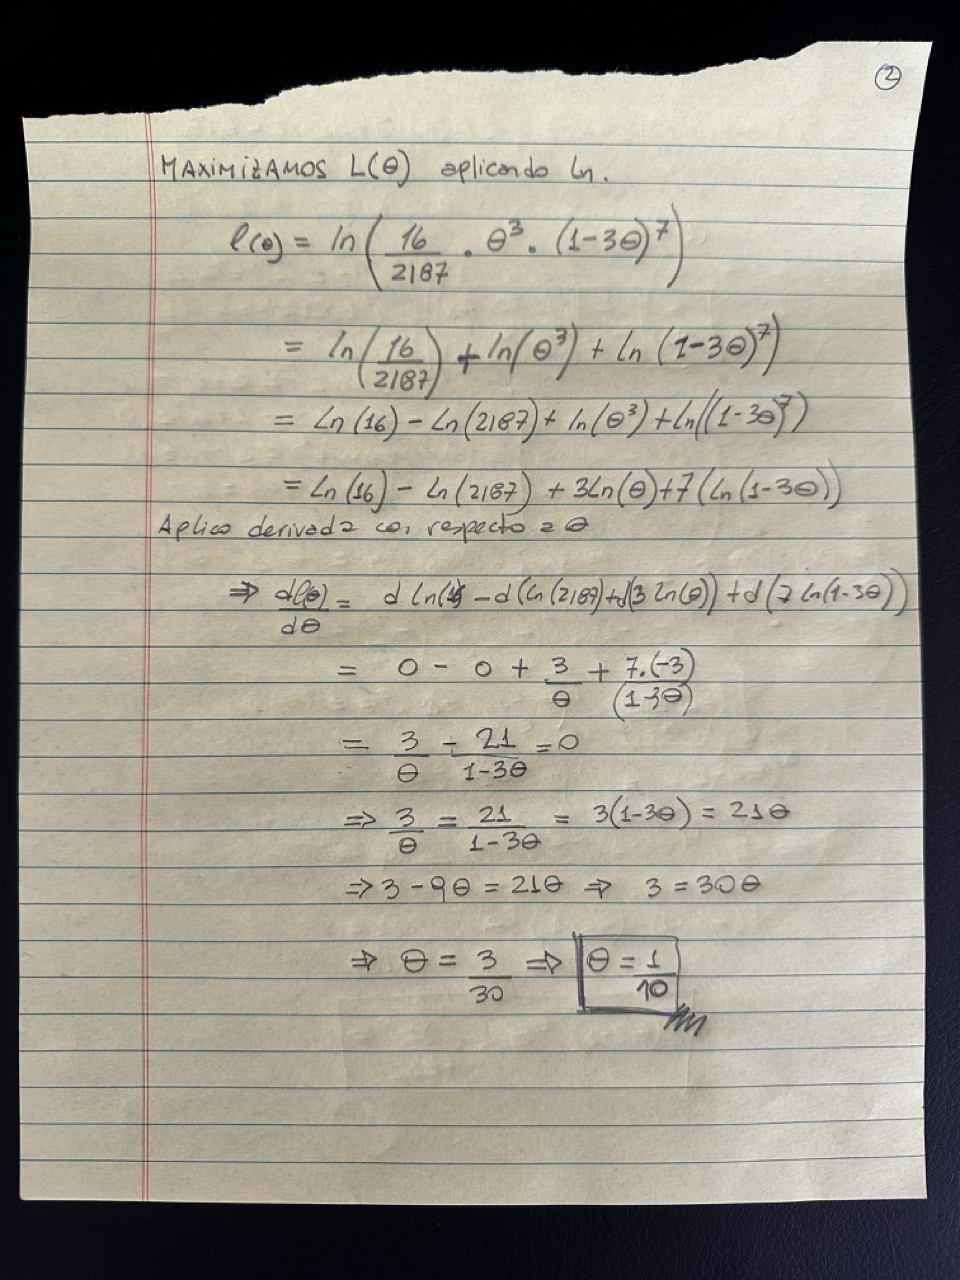 ②
MAXIMIZAMOS L(θ) aplicando ln.
ℓ(θ) = ln(16/2187 · θ³ · (1-3θ)⁷)
= ln(16/2187) + ln(θ³) + ln (1-3θ)⁷)
= Ln(16) - Ln(2187) + ln(θ³) + Ln((1-3θ)⁷)
= Ln(16) - Ln(2187) + 3Ln(θ)+7(Ln(1-3θ))
Aplico derivada con respecto a θ
⇒ dℓ(θ)/dθ = d ln(16) - d(Ln(2187)+d(3 Ln(θ)) + d(7 Ln(1-3θ))
= 0 - 0 + 3/θ + 7.(-3)/(1-3θ)
= 3/θ - 21/1-3θ = 0
⇒ 3/θ = 21/1-3θ = 3(1-3θ) = 21θ
⇒ 3 - 9θ = 21θ ⇒ 3 = 30θ
⇒ θ = 3/30 ⇒ θ = 1/10